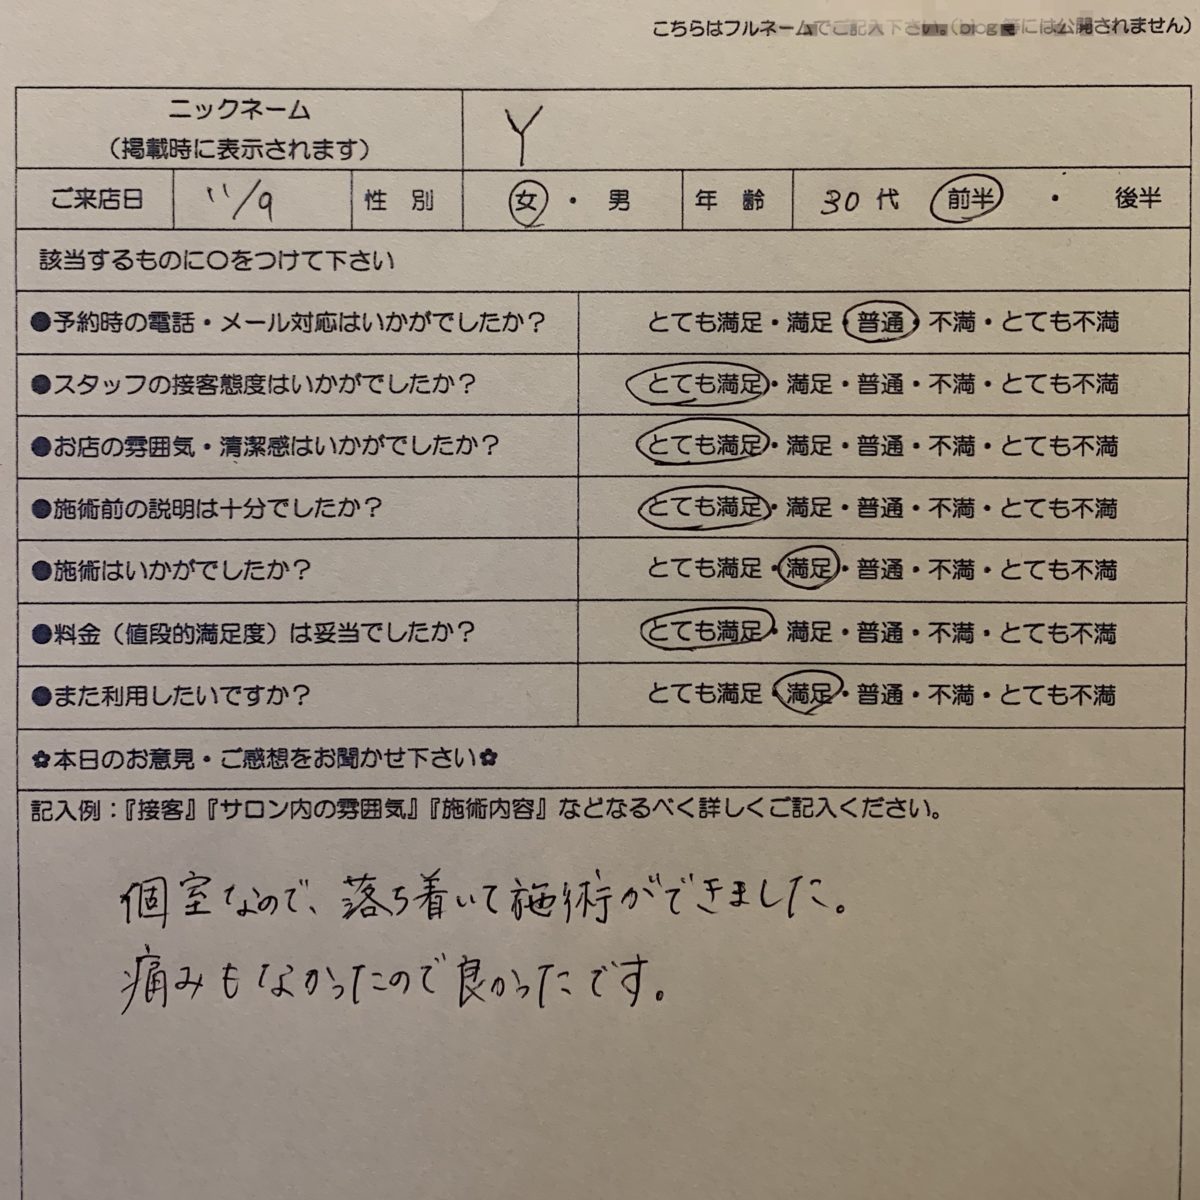 こちらはフルネームでご記入下さい。(blog等には公開されません)
ニックネーム
(掲載時に表示されます) Y
ご来店日 11/9 性 別 女 ・ 男 年 齢 30代 前半 ・ 後半
該当するものに〇をつけて下さい
●予約時の電話・メール対応はいかがでしたか? とても満足・満足・普通・不満・とても不満
●スタッフの接客態度はいかがでしたか? とても満足・満足・普通・不満・とても不満
●お店の雰囲気・清潔感はいかがでしたか? とても満足・満足・普通・不満・とても不満
●施術前の説明は十分でしたか? とても満足・満足・普通・不満・とても不満
●施術はいかがでしたか? とても満足・満足・普通・不満・とても不満
●料金(値段的満足度)は妥当でしたか? とても満足・満足・普通・不満・とても不満
●また利用したいですか? とても満足・満足・普通・不満・とても不満
✿本日のお意見・ご感想をお聞かせ下さい✿
記入例:『接客』『サロン内の雰囲気』『施術内容』などなるべく詳しくご記入ください。
個室なので、落ち着いて施術ができました。
痛みもなかったので良かったです。